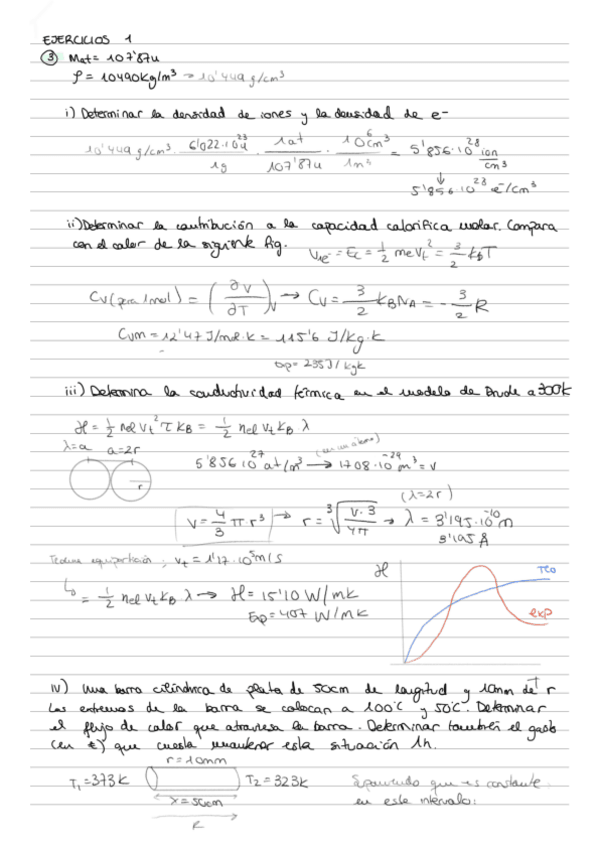 EJERCICIOS 1
③ Mat = 107'87u
ρ = 10490Kg/m³ → 10'449 g/cm³
i) Determinar la densidad de iones y la densidad de e-
10'449 g/cm³ · 6'022·10²³u / 1g · 1at / 107'87u · 10⁶cm³ / 1m³ = 5'856·10²⁸ ion/cm³
5'856·10²³ e⁻/cm³
ii) Determinar la contribución a la capacidad calorífica molar. Compara
con el calor de la siguiente fig. V1e⁻ = Ec = 1/2 me Vt² = 3/2 kBT
Cv (para 1mol) = (∂V/∂T)v → Cv = 3/2 kBNA = - 3/2 R
Cvm = 12'47 J/mol·k = 115'6 J/Kg·K
Exp = 235J/kgk
iii) Determina la conductividad térmica en el modelo de Drude a 300k
H = 1/2 nel Vt² τ KB = 1/2 nel Vt KB λ
λ=a a=2r
r
5'856·10²⁷ at/m³ → 1'708·10⁻²⁹ m³ = v
(λ=2r)
V = 4/3 π r³ → r = ³√(V·3/4π) → λ = 3'195·10⁻¹⁰ m
3'195 Å
Teorema equipartición: Vt = 1'17·10⁵ m/s
= 1/2 nel Vt KB λ → H = 15'10 W/mK
Exp = 407 W/mK
H
TEO
exp
iv) Una barra cilíndrica de plata de 50cm de longitud y 10mm de r
Los extremos de la barra se colocan a 100°C y 50°C. Determinar
el flujo de calor que atraviesa la barra. Determinar también el gasto
(en €) que cuesta mantener esta situación 1h.
r = 10mm
T₁ = 373K T₂ = 323K
x = 50cm
R
Suponiendo que es constante
en este intervalo: